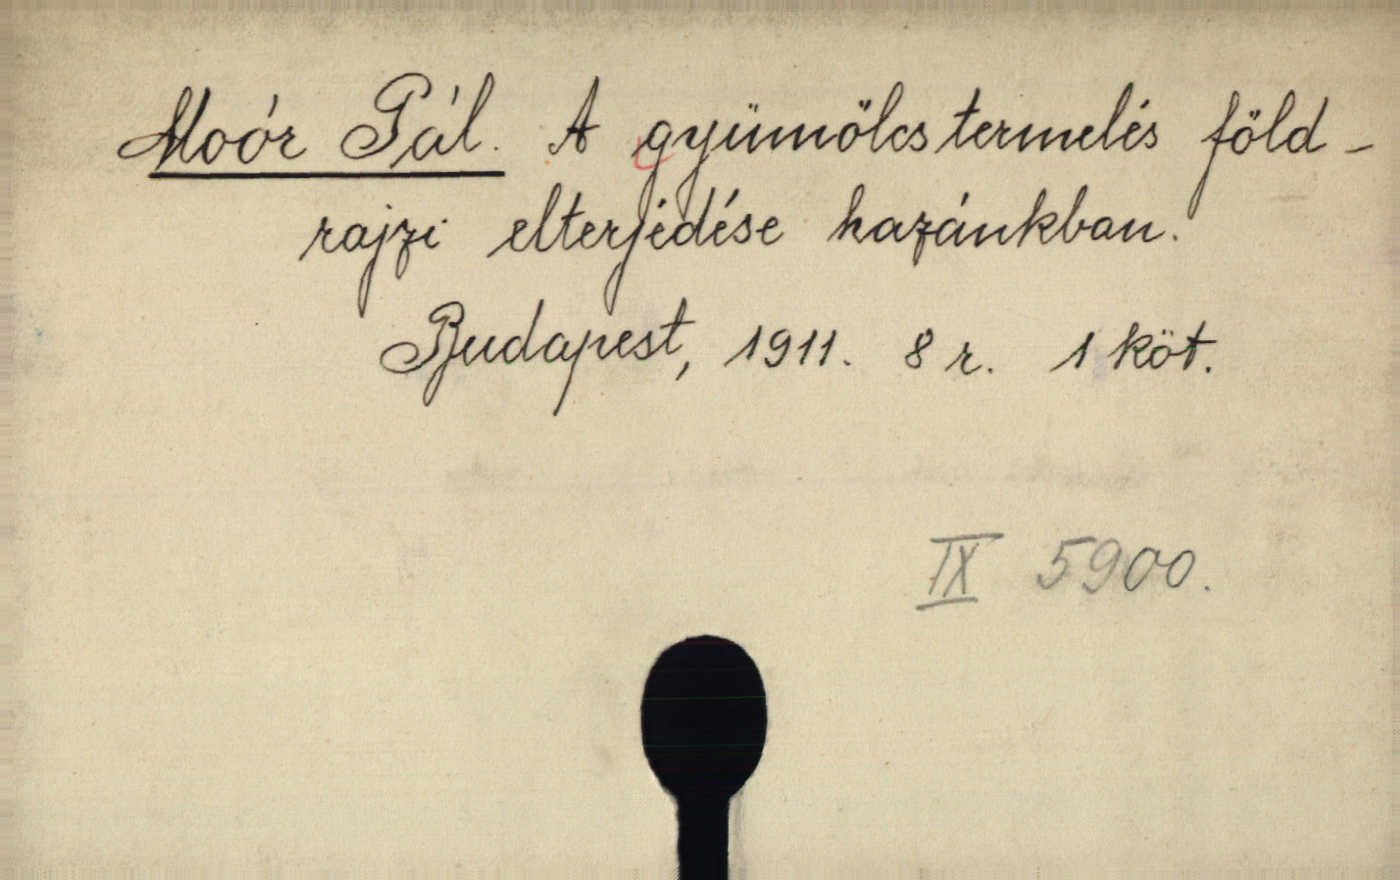 Moór Pál. A gyümölcstermelés föld-
rajzi elterjedése hazánkban.
Budapest, 1911. 8 r. 1 köt.
IX 5900.